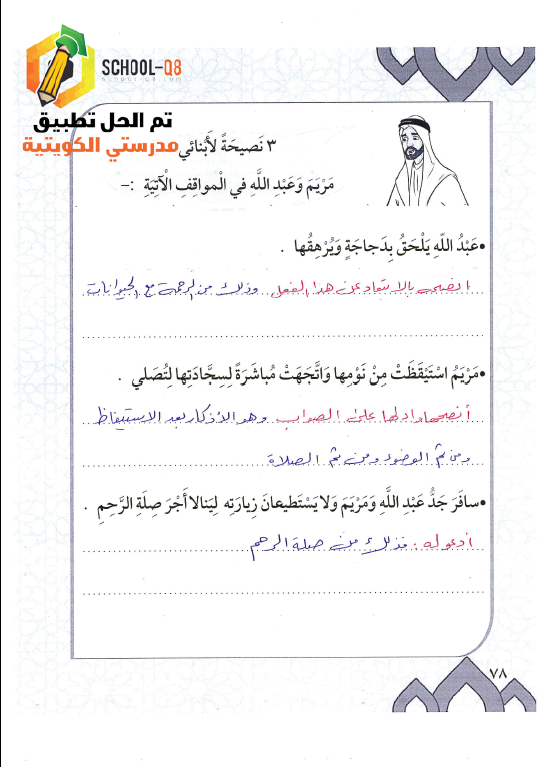 SCHOOL-Q8
school-q8.com
تم الحل تطبيق
مدرستي الكويتية
٣ نَصيحَةً لأَبْنائي
مَرْيَمَ وَعَبْدِ اللَّهِ في الْمواقِفِ الْآتِيَةِ :-
•عَبْدُ اللَّهِ يَلْحَقُ بِدَجاجَةٍ وَيُرْهِقُها .
انصحه بالابتعاد عن هذا الفعل وذلك من الرحمة مع الحيوانات
•مَرْيَمُ اسْتَيْقَظَتْ مِنْ نَوْمِها وَاتَّجَهَتْ مُباشَرَةً لِسِجَّادَتِها لِتُصَلي .
أنصحها وادلها على الصواب وهو الأذكار بعد الاستيقاظ
ومن ثم الوضوء ومن ثم الصلاة
•سافَرَ جَدُّ عَبْدِ اللَّهِ وَمَرْيَمَ وَلا يَسْتَطيعانَ زِيارَتِه لِيَنالا أَجْرَ صِلَةِ الرَّحِمِ .
أدعو له . فذلك من صلة الرحم
٧٨